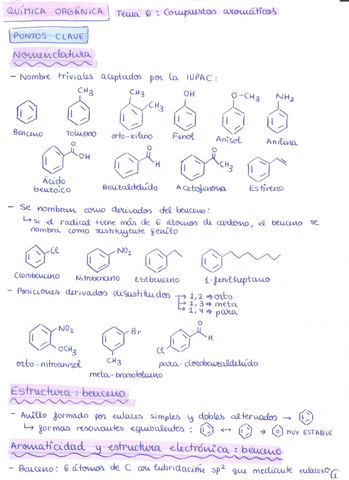 QUÍMICA ORGÁNICA: Tema 6: Compuestos aromáticos
PUNTOS CLAVE
Nomenclatura
- Nombre triviales aceptados por la IUPAC:
CH3 CH3 CH3 OH O-CH3 NH2
Benceno Tolueno orto-xileno Fenol Anisol Anilina
O OH O H O CH3
Ácido benzoico Benzaldehído Acetofenona Estireno
- Se nombran como derivados del benceno:
↳ si el radical tiene más de 6 átomos de carbono, el benceno se
nombra como sustituyente fenilo
Cl NO2
Clorobenceno Nitrobenceno Etilbenceno 1-fenilheptano
- Posiciones derivados disustituidos → 1,2 ⇒ orto
→ 1,3 ⇒ meta
→ 1,4 ⇒ para
NO2 OCH3 Br CH3 O H Cl
orto-nitroanisol meta-bromotolueno para-clorobenzaldehído
Estructura: benceno
- Anillo formado por enlaces simples y dobles alternados →
↳ formas resonantes equivalentes: ↔ ⇒ MUY ESTABLE
Aromaticidad y estructura electrónica: benceno
- Benceno: 6 átomos de C con hibridación sp2 que mediante enlaces